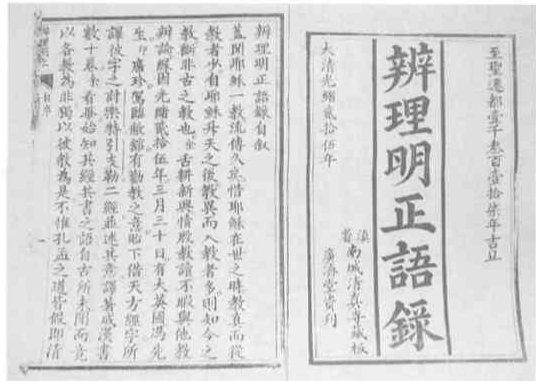 至聖遷都壹千叁百壹拾柒年吉旦
辨理明正語錄
滇省南城清真寺藏板
廣濟堂資刊
大清光緒貳拾伍年
辨理明正語錄自叙
蓋聞耶穌一教流傳久矣惜耶穌在世之時教真而從
教者少自耶穌升天之後教異而入教者多則如今之
教斷非古之教也余舌耕新興情殷教讀不暇與他教
辯論緣因光緒貳拾伍年三月三十日有大英馮先
生印廣玲駕臨敝館有勸教之意貽下借天方經字所
譯彼字之討樂特引支勒二經並述其意譯著成漢書
數十卷余看畢始知其經其書之語自古所未聞而竟
以各教為非獨以彼教為是不惟孔孟之道皆假即清